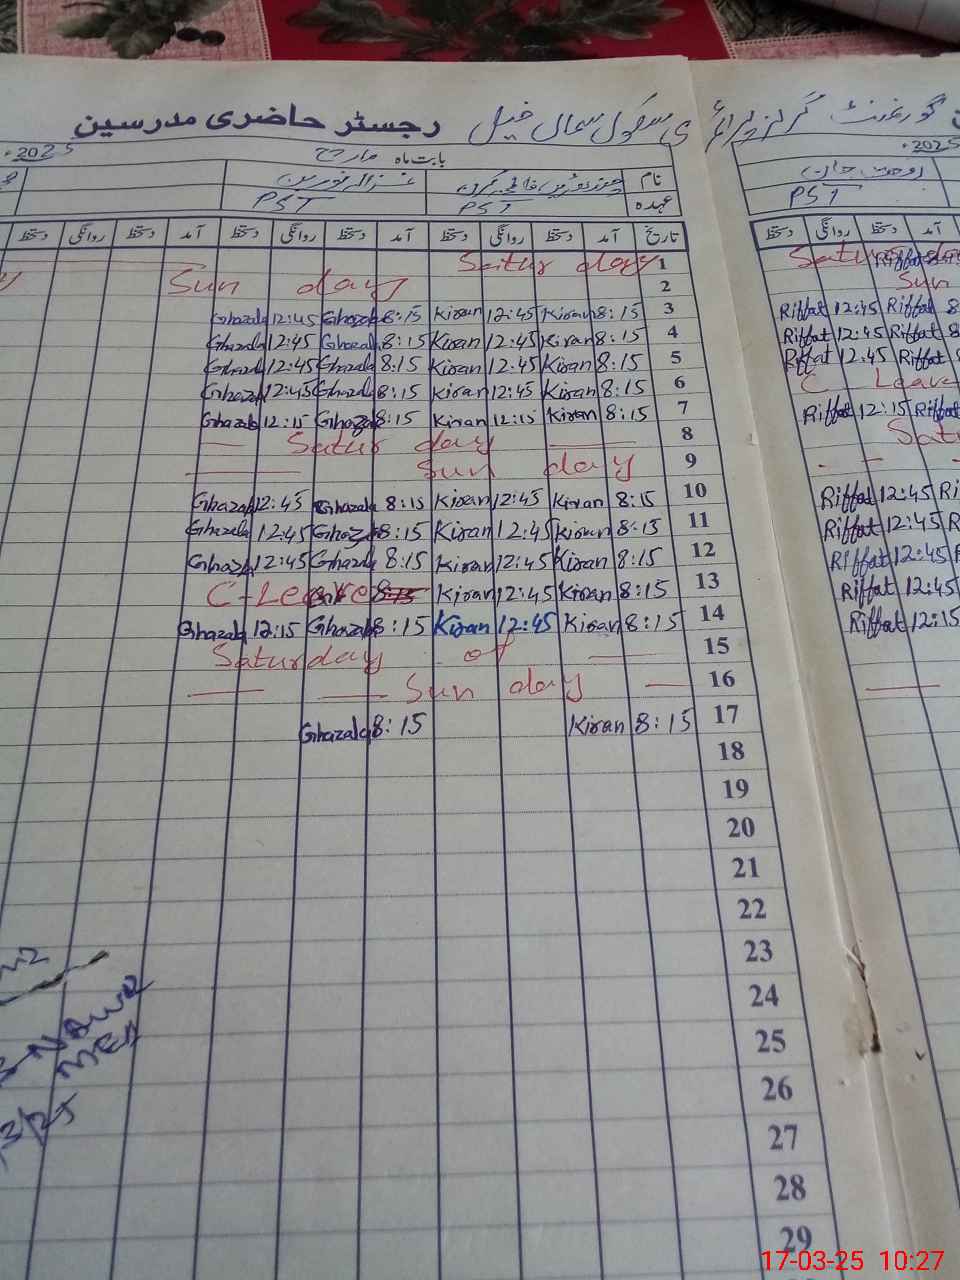 گورنمنٹ گرلز پرائمری سکول سمال خیل رجسٹر حاضری مدرسین
بابت ماہ مارچ 2025
2025
نام
عہدہ PST PST
PST
تاریخ آمد دستخط روانگی دستخط آمد دستخط روانگی دستخط آمد دستخط روانگی
آمد دستخط روانگی دستخط
1 Satur day
2 Sun day
3 8:15 Kiran 12:45 Kiran 8:15 Ghazala 12:45 Ghazala
4 8:15 Kiran 12:45 Kiran 8:15 Ghazala 12:45 Ghazala
5 8:15 Kiran 12:45 Kiran 8:15 Ghazala 12:45 Ghazala
6 8:15 Kiran 12:45 Kiran 8:15 Ghazala 12:45 Ghazala
7 8:15 Kiran 12:15 Kiran 8:15 Ghazala 12:15 Ghazala
8 Satur day
9 Sun day
10 8:15 Kiran 12:45 Kiran 8:15 Ghazala 12:45 Ghazala
11 8:15 Kiran 12:45 Kiran 8:15 Ghazala 12:45 Ghazala
12 8:15 Kiran 12:45 Kiran 8:15 Ghazala 12:45 Ghazala
13 8:15 Kiran 12:45 Kiran 8:15 C-Leave
14 8:15 Kiran 12:45 Kiran 8:15 Ghazala 12:15 Ghazala
15 Saturday of
16 Sun day
17 8:15 Kiran 8:15 Ghazala
18
19
20
21
22
23
24
25
26
27
28
29
Sun
Riffat 12:45 Riffat 8
Riffat 12:45 Riffat 8
Riffat 12:45 Riffat
C Leave
Riffat 12:15 Riffat
Satu
Riffat 12:45 Ri
Riffat 12:45 R
Riffat 12:45 R
Riffat 12:45
Riffat 12:15
17-03-25 10:27